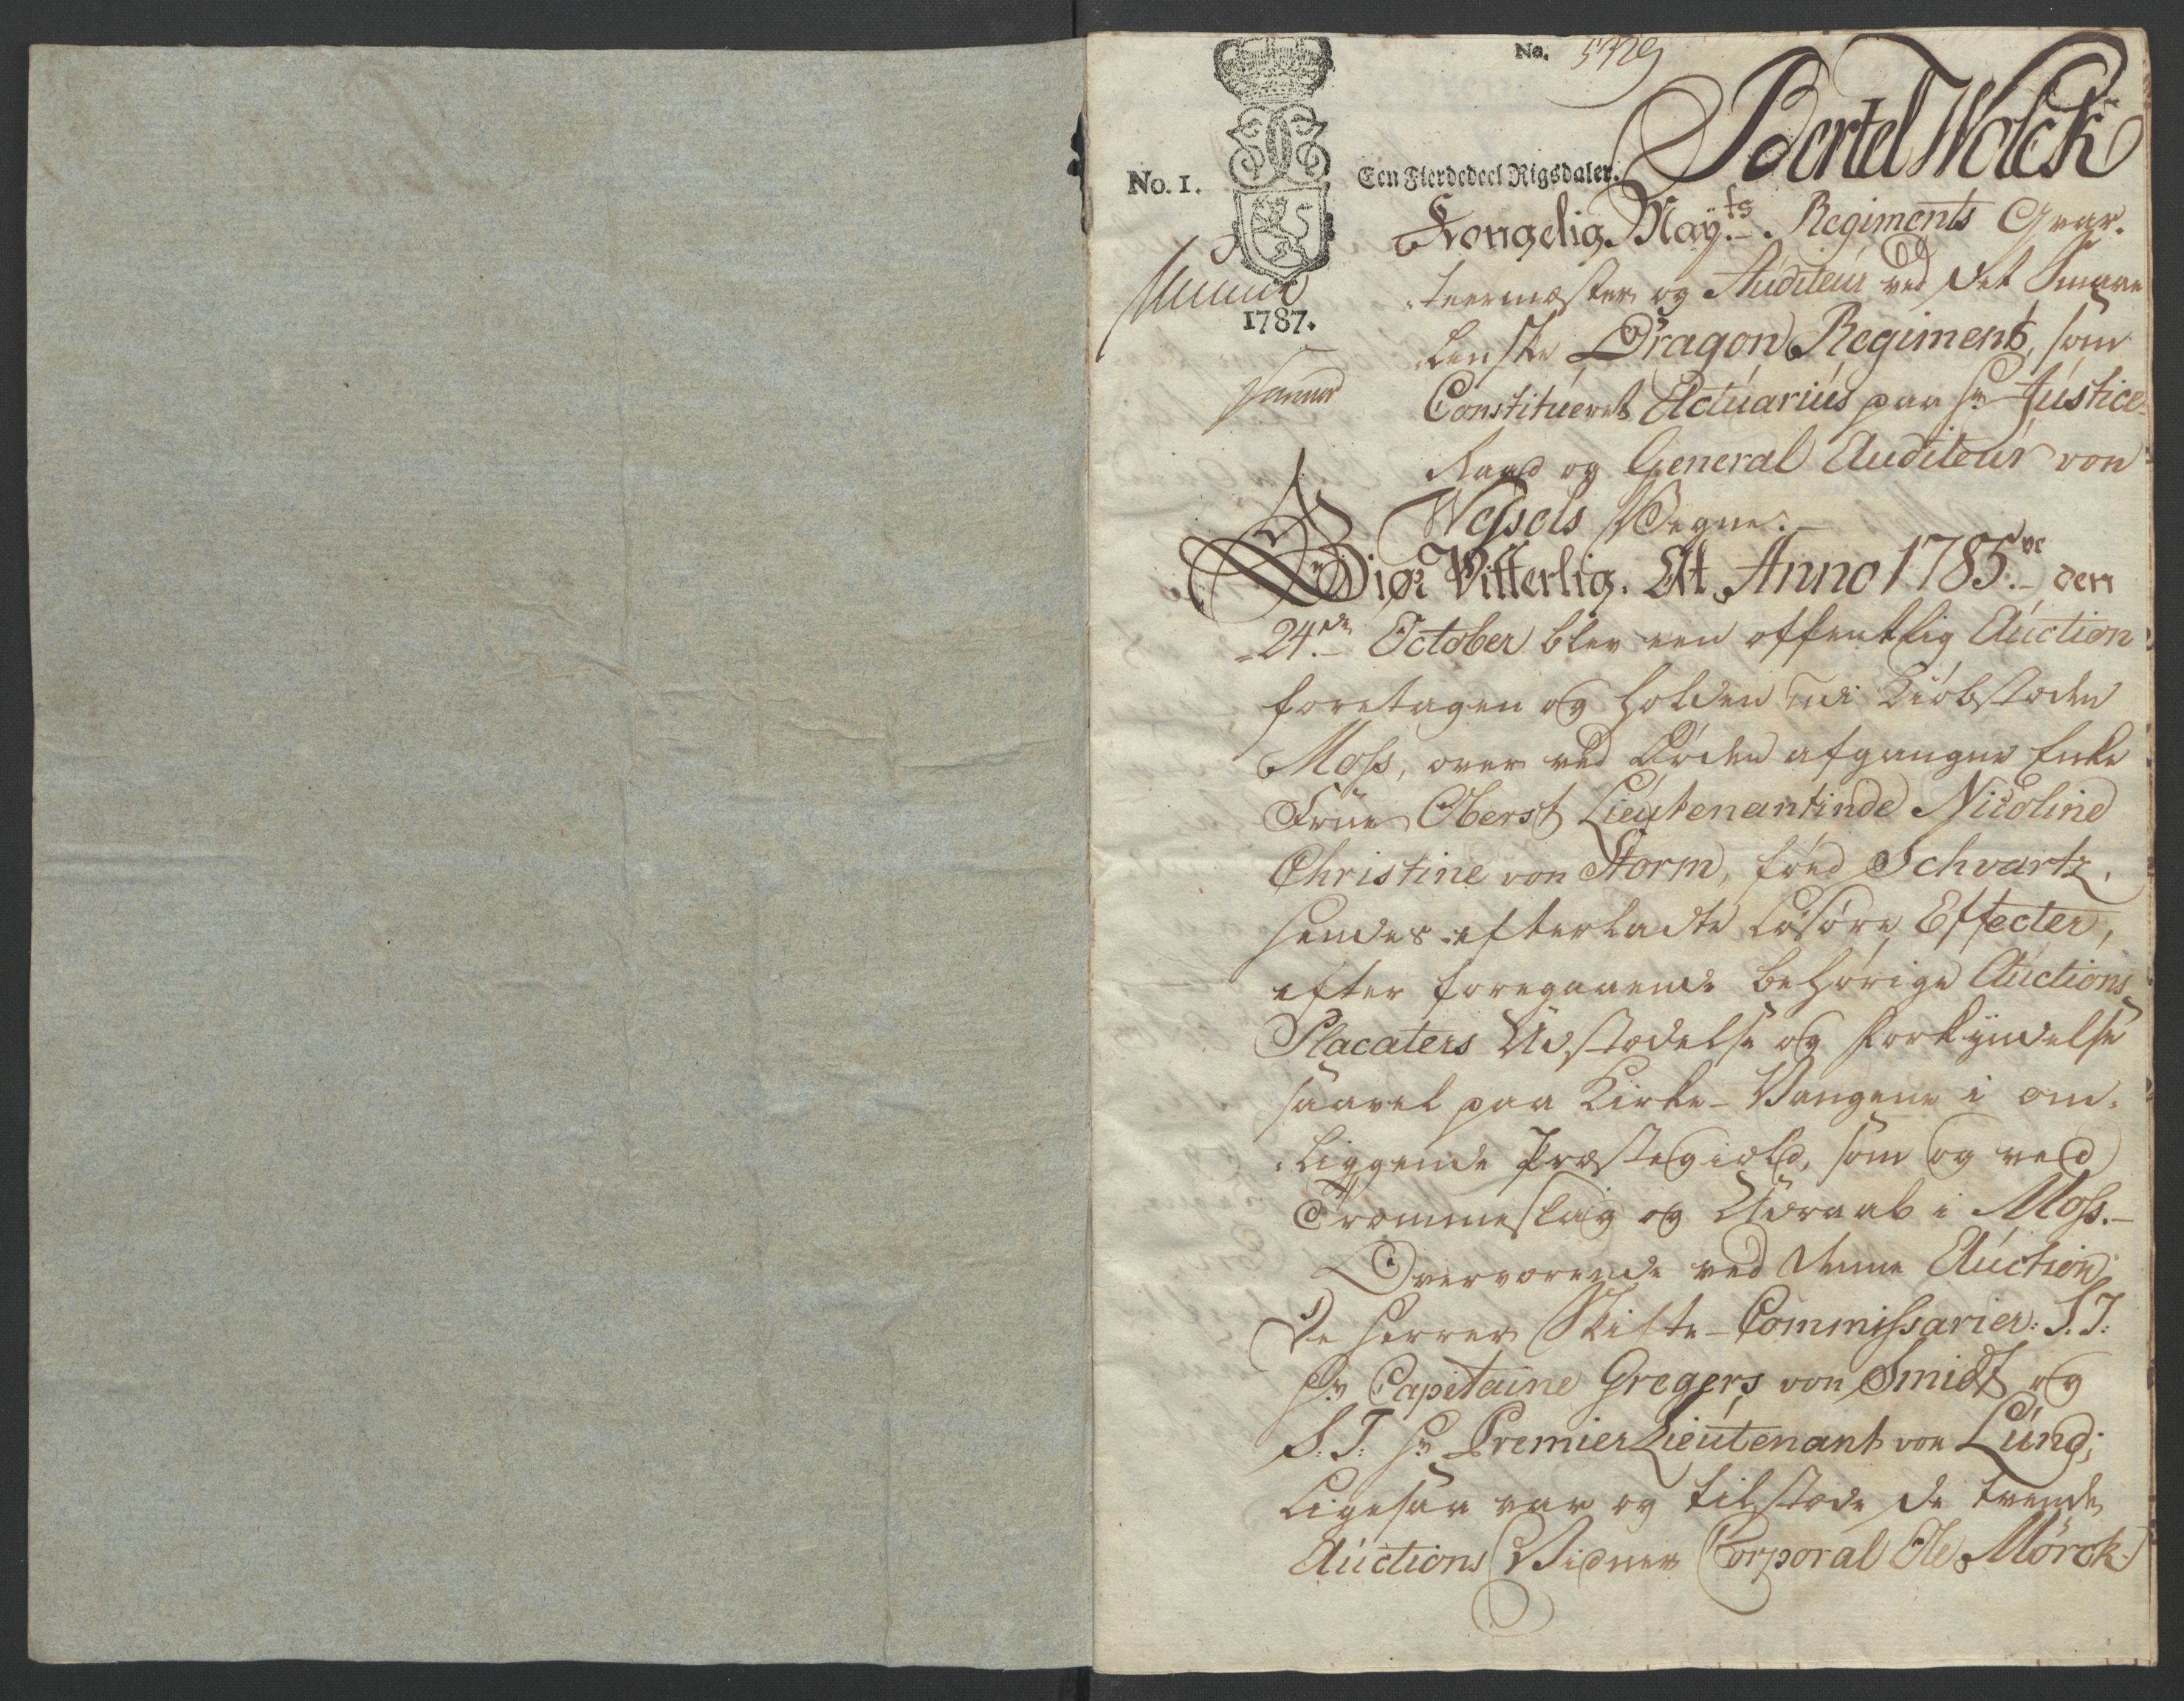 No. 5729
No. 1. Een Fierdedeel Rigsdaler.
1787.
Bertel Wolck
Kongelig May:ts Regiments Qvar-
teermæster og Auditeur ved det Smaae
lenske Dragon Regiment, som
Constitueret Actuarius paa Hr Justice
Raad og General Auditeur von
Wessels Vegne.
Giør Vitterlig. At Anno 1785.ve den
24.de October blev een offentlig Auction
foretagen og holden udi Kiøbstæden
Moss, over ved Døden afgangne Enke
Frue Oberst Lieutenantinde Nicoline
Christine von Storm, fød Schvartz,
hendes efterladte Løsøre Effecter,
efter foregaaende behørige Auctions
Placaters Udstædelse og Forkyndelse
saavel paa Kirke-Vangene i om-
liggende Præstegield, som og ved
Trommeslag og Udraab i Moss.
Overværende ved denne Auction
De Herrer Skifte-Commissarier: S. T.
Hr Capitaine Gregers von Smidt og
S. T. Hr Premier Lieutenant von Lund;
Ligesaa var og tilstæde de tvende
Auctions Vidner Corporal Ole Mörck